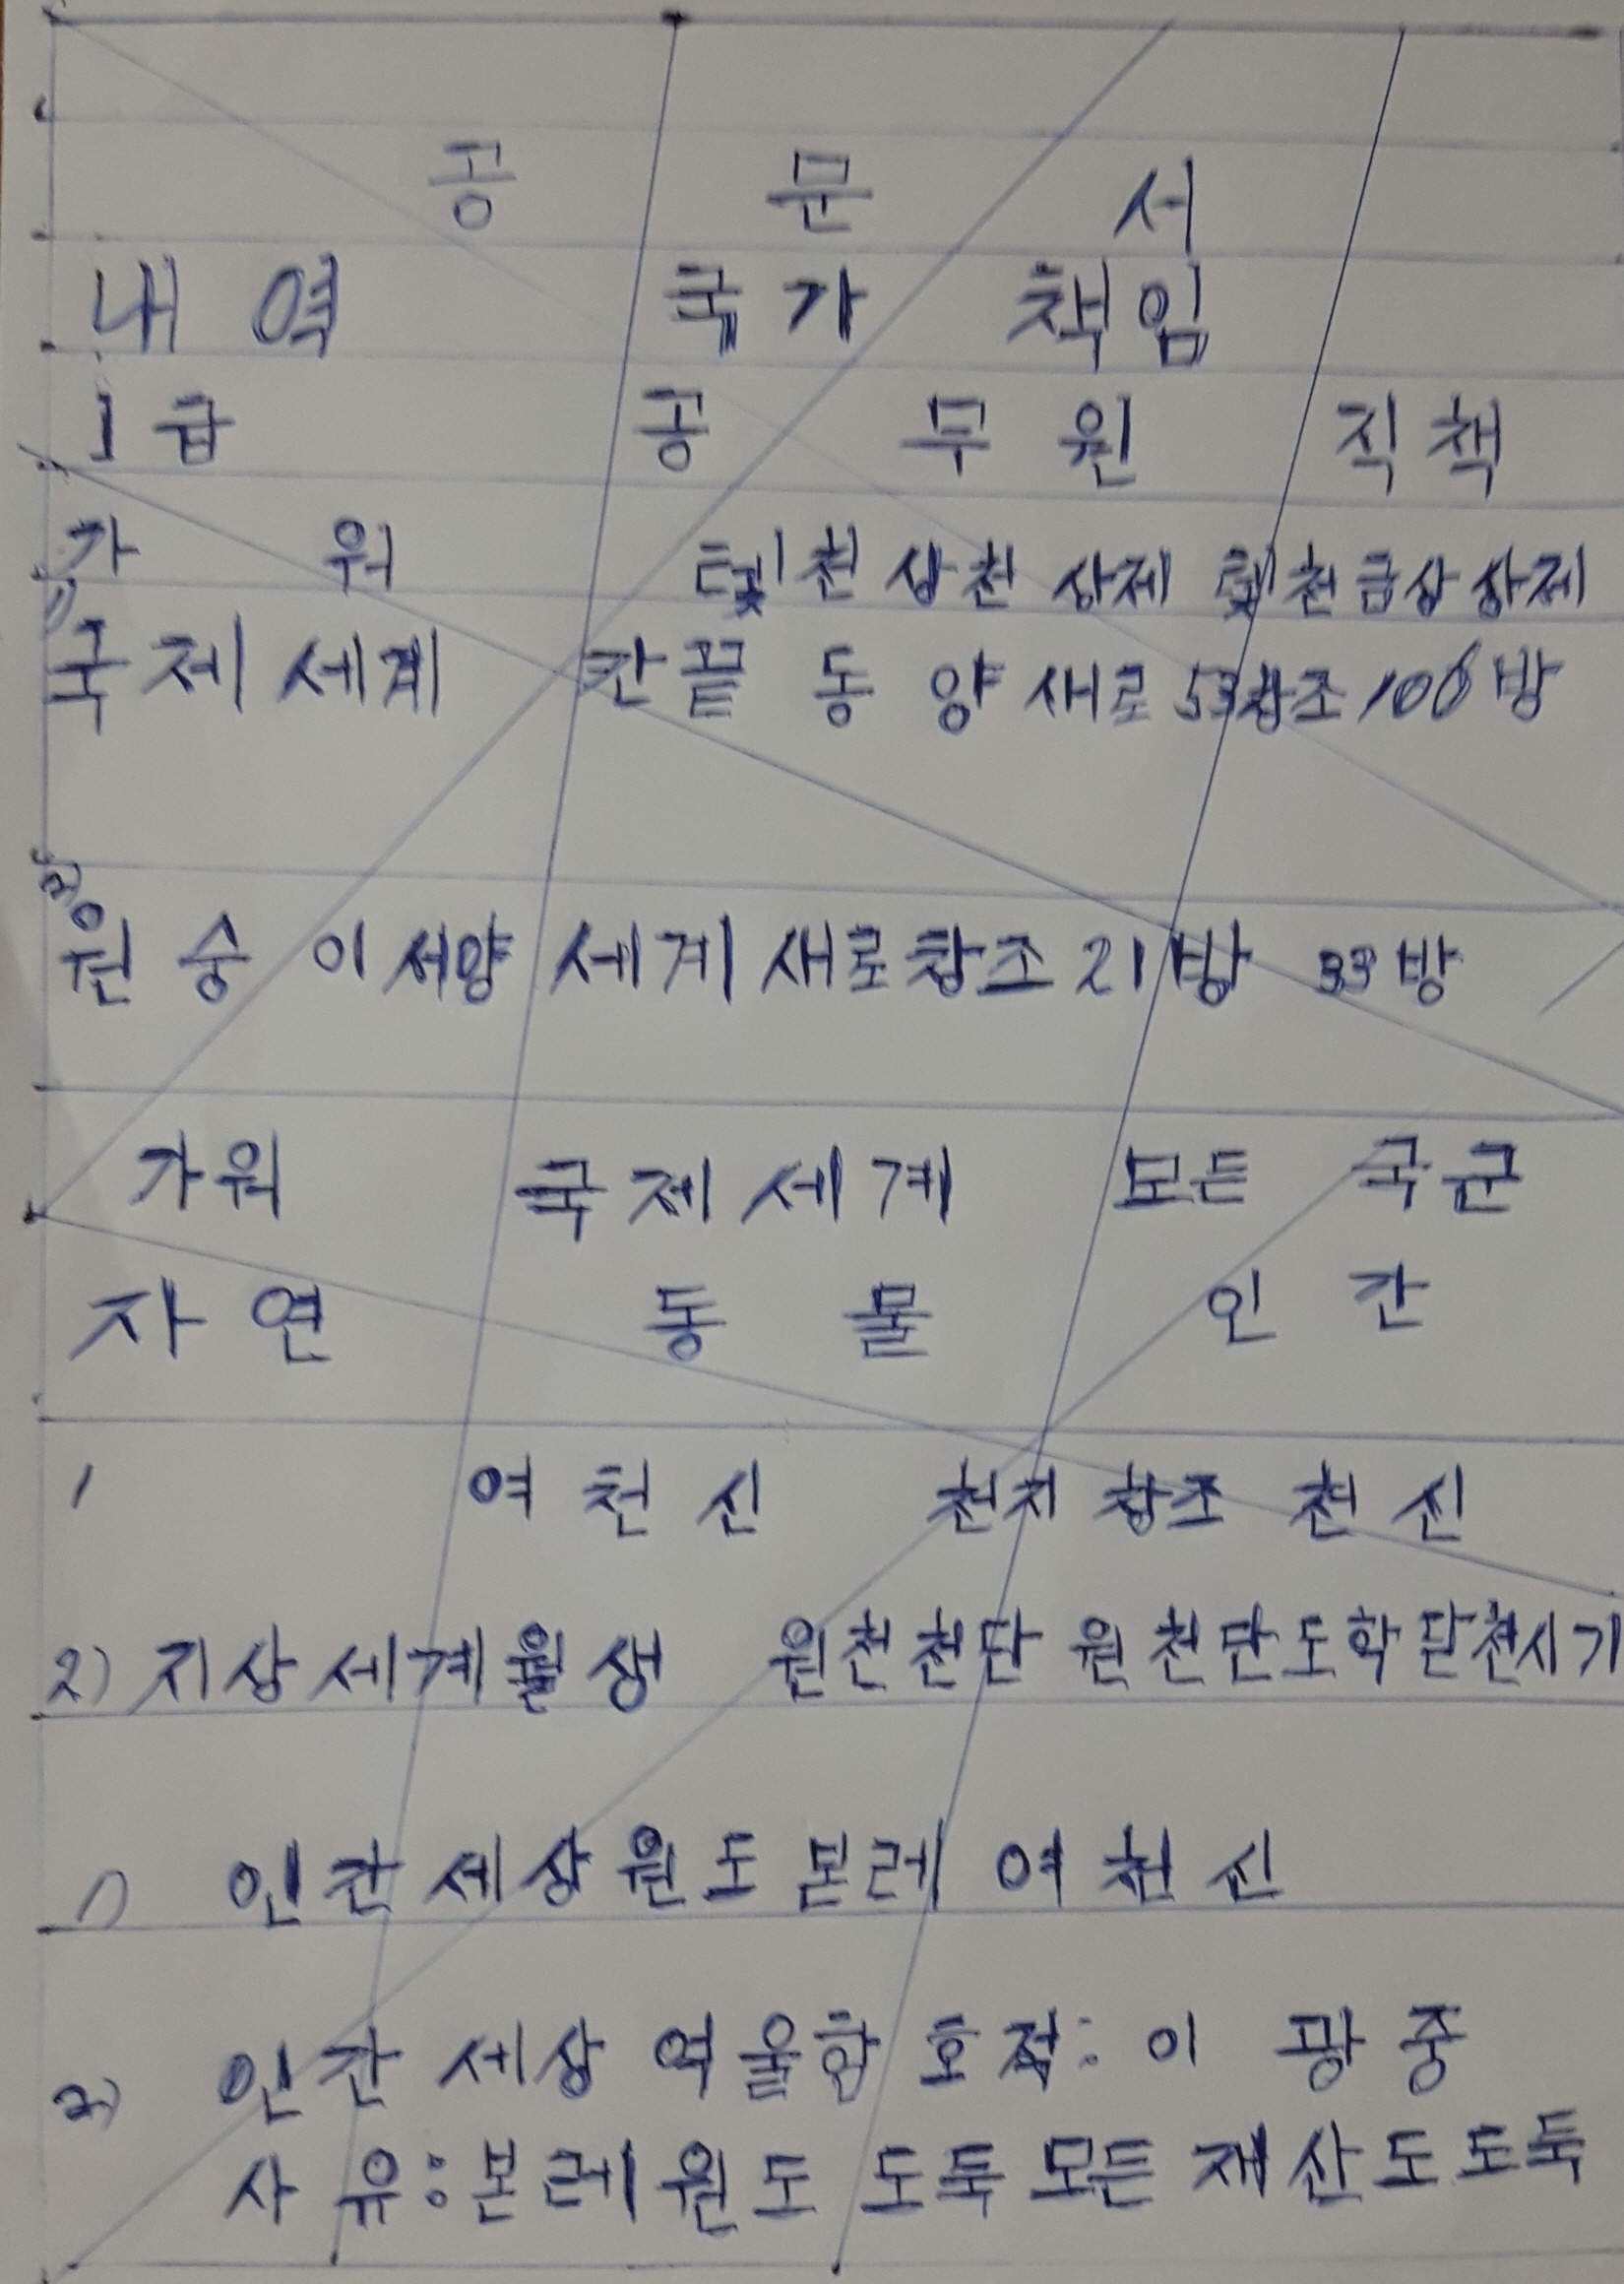 공 문 서
내역 국가 책임
1급 공무원 직책
가 워 천상천 상제 천급상 상제
1)
국제세계 칸끝 동양 새로 53창조 106방
2)
원숭이 서양 세계 새로창조 21방 33방
가워 국제세계 모든 국군
자연 동물 인간
1 여천신 천지창조 천신
2) 지상세계월생 원천천단 원천단도학단천시기
1) 인간세상원도본레 여천신
2) 인간세상 역울함 호적: 이광중
사유: 본레원도 도둑 모든 재산도 도둑